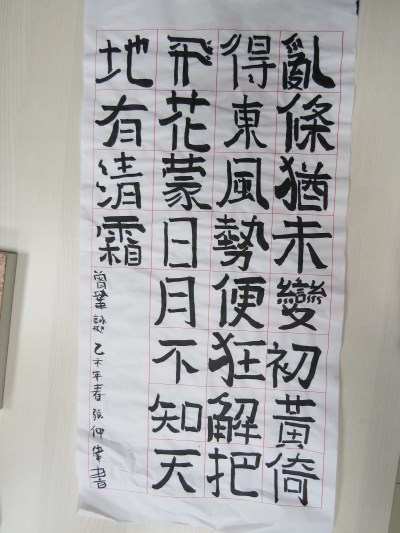 亂條猶未變初黃倚
得東風勢便狂解把
飛花蒙日月不知天
地有清霜
曾鞏詠乙未年春張仲書